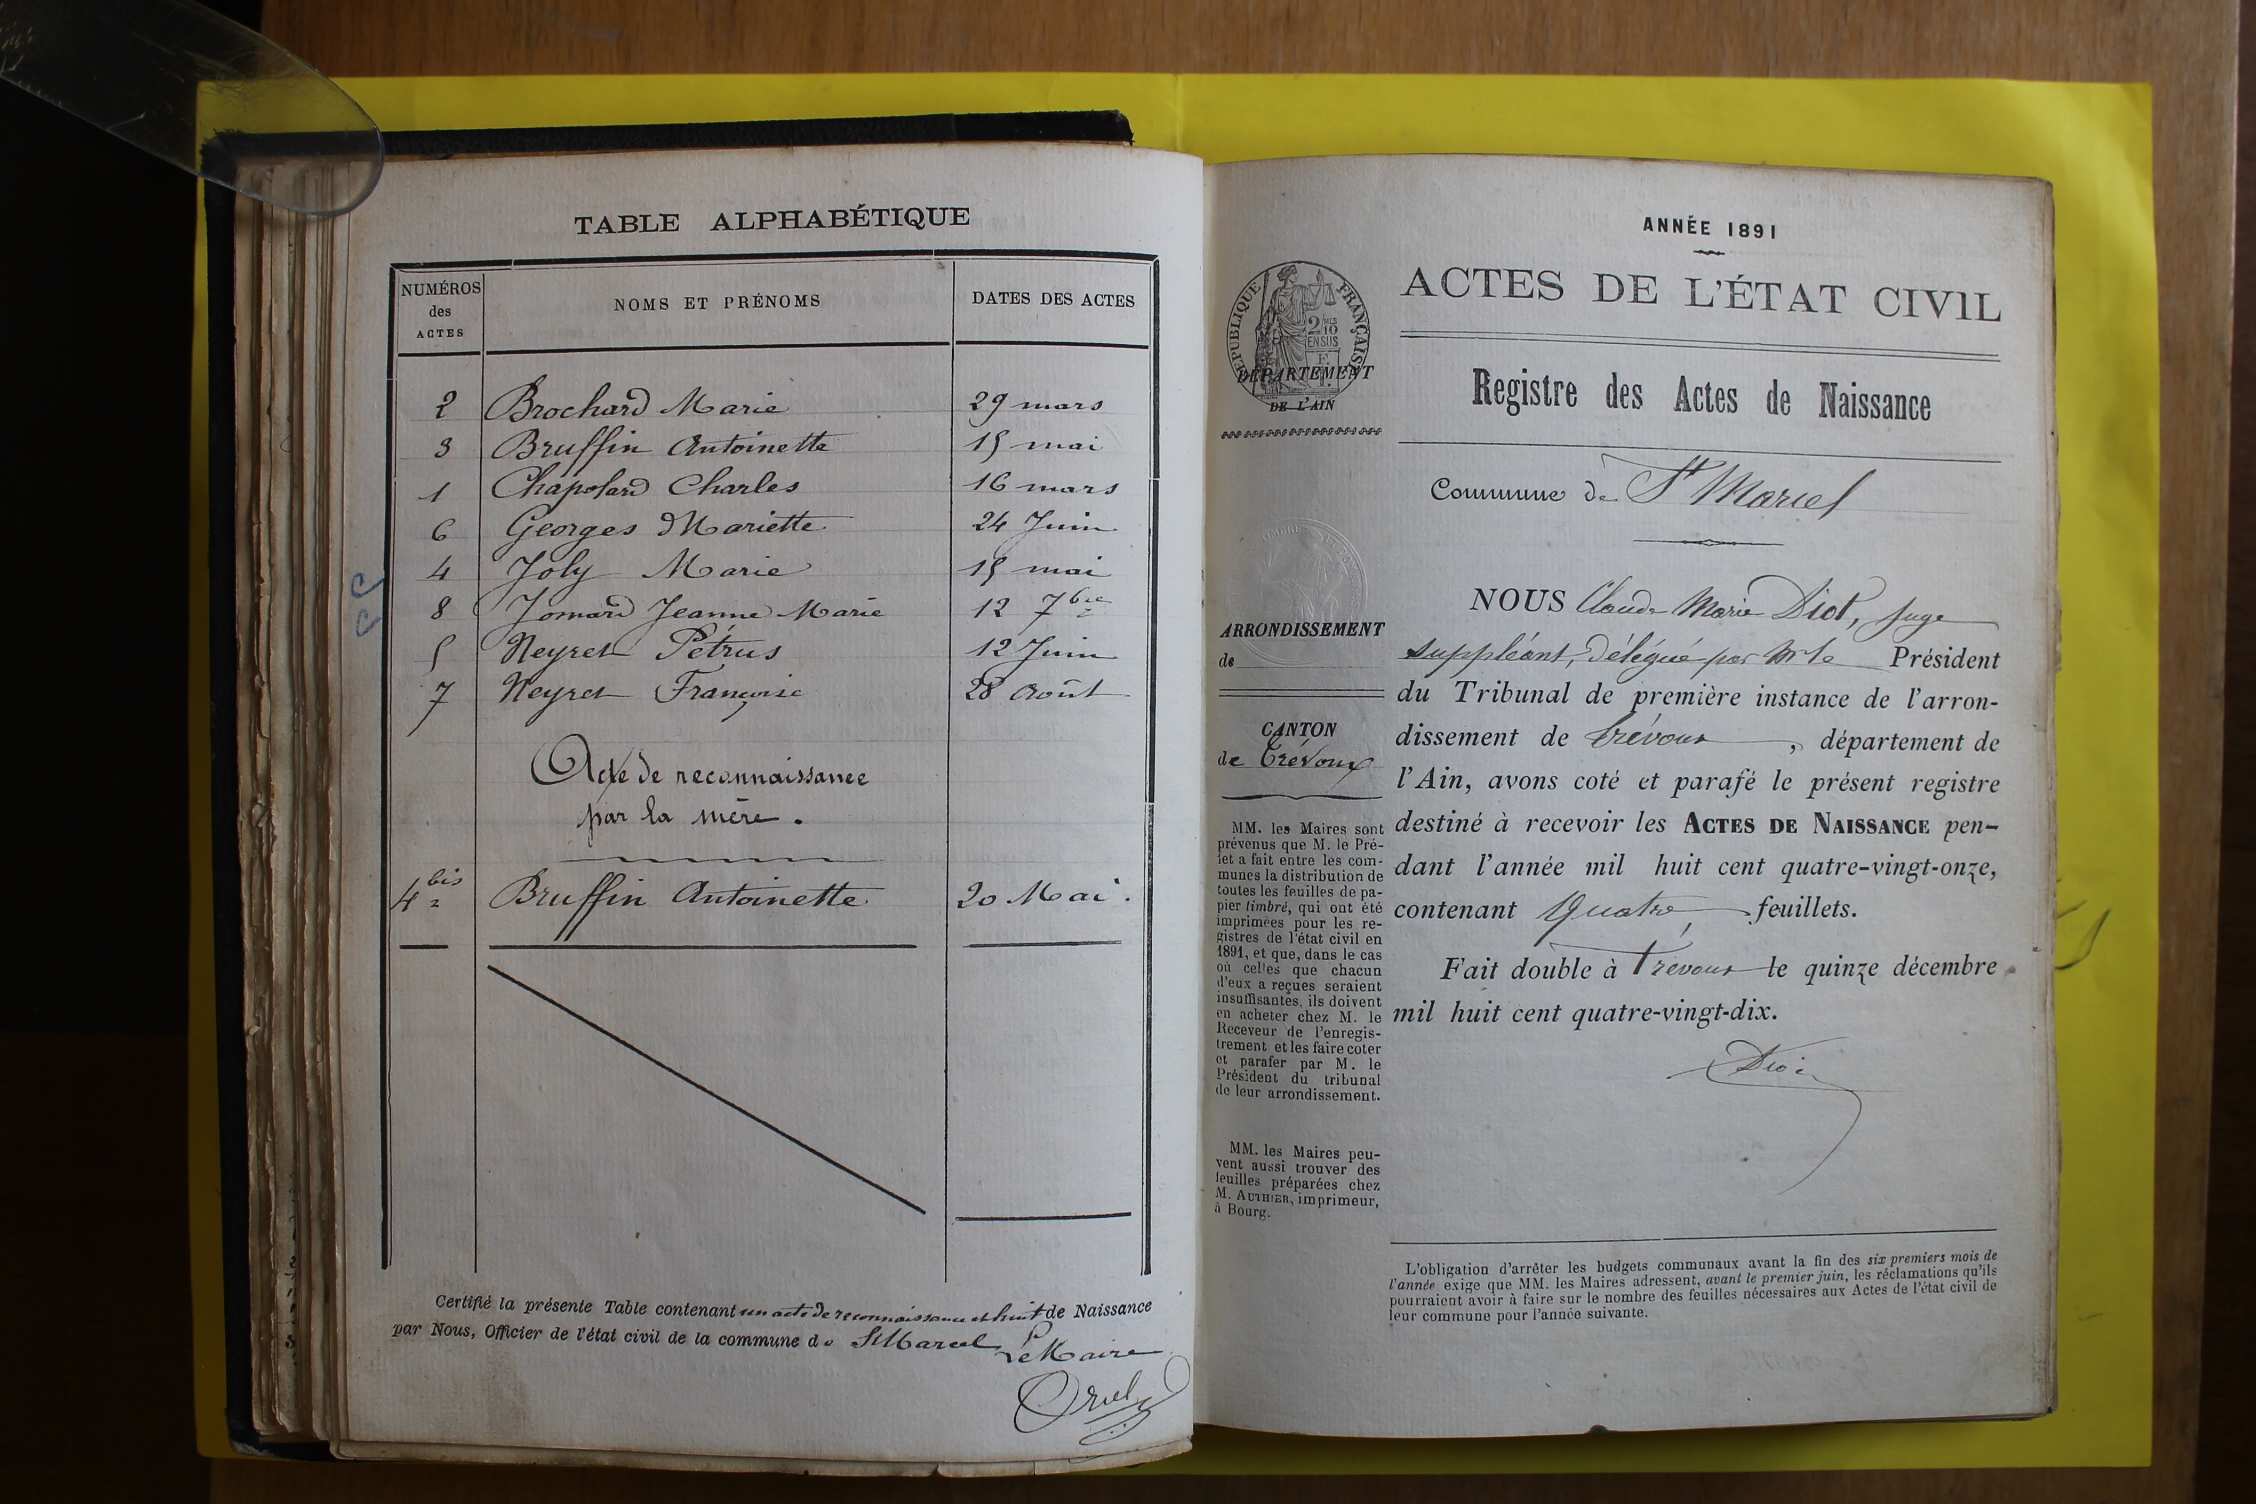 TABLE ALPHABÉTIQUE
NUMÉROS des ACTES
NOMS ET PRÉNOMS
DATES DES ACTES
2 Brochard Marie 29 mars
3 Bruffin Antoinette 15 mai
1 Chapolard Charles 16 mars
6 Georges Mariette 24 Juin
4 Joly Marie 15 mai
8 Jomard Jeanne Marie 12 7bre
5 Neyret Pétrus 12 Juin
7 Neyret Françoise 28 Août
Acte de reconnaissance
par la mère.
4 bis Bruffin Antoinette 20 Mai.
Certifié la présente Table contenant un acte de reconnaissance et huit de Naissance
par Nous, Officier de l'état civil de la commune de St Marcel
Le Maire
ANNÉE 1891
ACTES DE L'ÉTAT CIVIL
RÉPUBLIQUE FRANÇAISE
2 10
EN SUS
DÉPARTEMENT
DE L'AIN
Registre des Actes de Naissance
Commune de St Marcel
ARRONDISSEMENT
de
CANTON
de Trévoux
NOUS Claude Marie Diot, juge
suppléant, délégué par Mr le Président
du Tribunal de première instance de l'arron-
dissement de Trévoux, département de
l'Ain, avons coté et parafé le présent registre
destiné à recevoir les ACTES DE NAISSANCE pen-
dant l'année mil huit cent quatre-vingt-onze,
contenant Quatre feuillets.
Fait double à Trévoux le quinze décembre
mil huit cent quatre-vingt-dix.
Diot
MM. les Maires sont
prévenus que M. le Pré-
fet a fait entre les com-
munes la distribution de
toutes les feuilles de pa-
pier timbré, qui ont été
imprimées pour les re-
gistres de l'état civil en
1891, et que, dans le cas
où celles que chacun
d'eux a reçues seraient
insuffisantes, ils doivent
en acheter chez M. le
Receveur de l'enregis-
trement et les faire coter
et parafer par M. le
Président du tribunal
de leur arrondissement.
MM. les Maires peu-
vent aussi trouver des
feuilles préparées chez
M. AUTHIER, imprimeur,
à Bourg.
L'obligation d'arrêter les budgets communaux avant la fin des six premiers mois de
l'année exige que MM. les Maires adressent, avant le premier juin, les réclamations qu'ils
pourraient avoir à faire sur le nombre des feuilles nécessaires aux Actes de l'état civil de
leur commune pour l'année suivante.